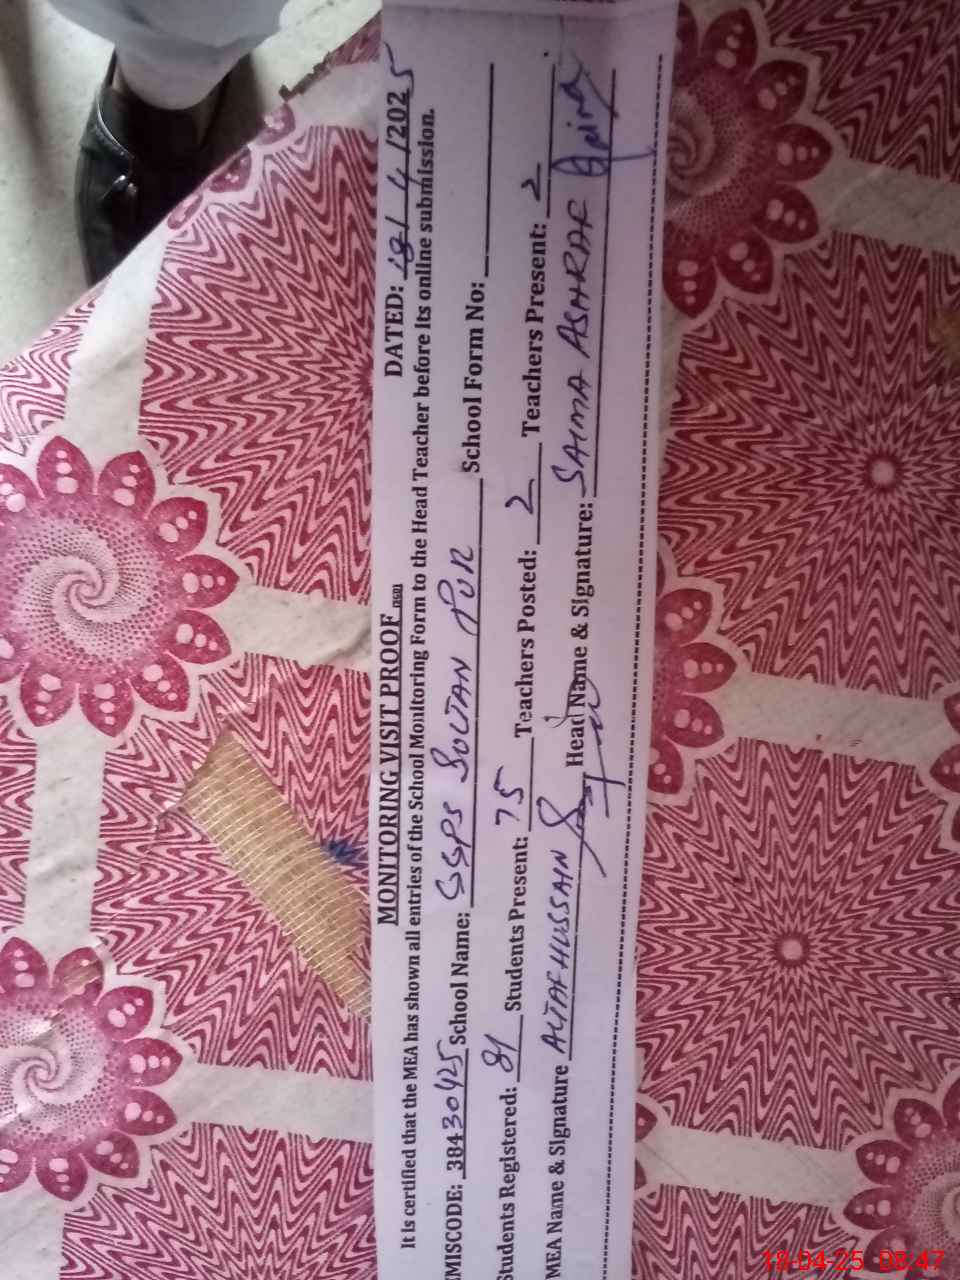 MONITORING VISIT PROOF DATED: 18/4/2025
It Is certified that the MEA has shown all entries of the School Monitoring Form to the Head Teacher before its online submission.
EMISCODE: 38430425 School Name: GGPS SULTAN PUR School Form No:
Students Registered: 81 Students Present: 75 Teachers Posted: 2 Teachers Present: 2
MEA Name & Signature ALTAF HUSSAIN Head Name & Signature: SAIMA ASHRAF
18-04-25 08:47